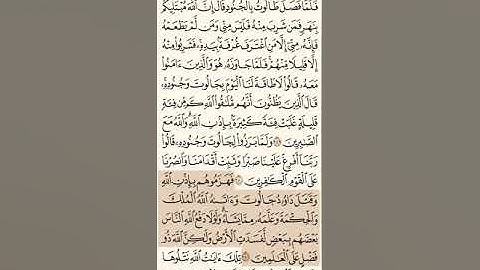 فَلَمَّا فَصَلَ طَالُوتُ بِٱلْجُنُودِ قَالَ إِنَّ ٱللَّهَ مُبْتَلِيكُم
بِنَهَرٍ فَمَن شَرِبَ مِنْهُ فَلَيْسَ مِنِّى وَمَن لَّمْ يَطْعَمْهُ
فَإِنَّهُۥ مِنِّىٓ إِلَّا مَنِ ٱغْتَرَفَ غُرْفَةًۢ بِيَدِهِۦ ۚ فَشَرِبُوا۟ مِنْهُ
إِلَّا قَلِيلًا مِّنْهُمْ ۚ فَلَمَّا جَاوَزَهُۥ هُوَ وَٱلَّذِينَ ءَامَنُوا۟
مَعَهُۥ قَالُوا۟ لَا طَاقَةَ لَنَا ٱلْيَوْمَ بِجَالُوتَ وَجُنُودِهِۦ ۚ
قَالَ ٱلَّذِينَ يَظُنُّونَ أَنَّهُم مُّلَٰقُوا۟ ٱللَّهِ كَم مِّن فِئَةٍ
قَلِيلَةٍ غَلَبَتْ فِئَةً كَثِيرَةًۢ بِإِذْنِ ٱللَّهِ ۗ وَٱللَّهُ مَعَ
ٱلصَّٰبِرِينَ ٢٤٩ وَلَمَّا بَرَزُوا۟ لِجَالُوتَ وَجُنُودِهِۦ قَالُوا۟
رَبَّنَآ أَفْرِغْ عَلَيْنَا صَبْرًا وَثَبِّتْ أَقْدَامَنَا وَٱنصُرْنَا
عَلَى ٱلْقَوْمِ ٱلْكَٰفِرِينَ ٢٥٠ فَهَزَمُوهُم بِإِذْنِ ٱللَّهِ
وَقَتَلَ دَاوُۥدُ جَالُوتَ وَءَاتَىٰهُ ٱللَّهُ ٱلْمُلْكَ
وَٱلْحِكْمَةَ وَعَلَّمَهُۥ مِمَّا يَشَآءُ ۗ وَلَوْلَا دَفْعُ ٱللَّهِ ٱلنَّاسَ
بَعْضَهُم بِبَعْضٍ لَّفَسَدَتِ ٱلْأَرْضُ وَلَٰكِنَّ ٱللَّهَ ذُو
فَضْلٍ عَلَى ٱلْعَٰلَمِينَ ٢٥١ تِلْكَ ءَايَٰتُ ٱللَّهِ نَتْلُوهَا